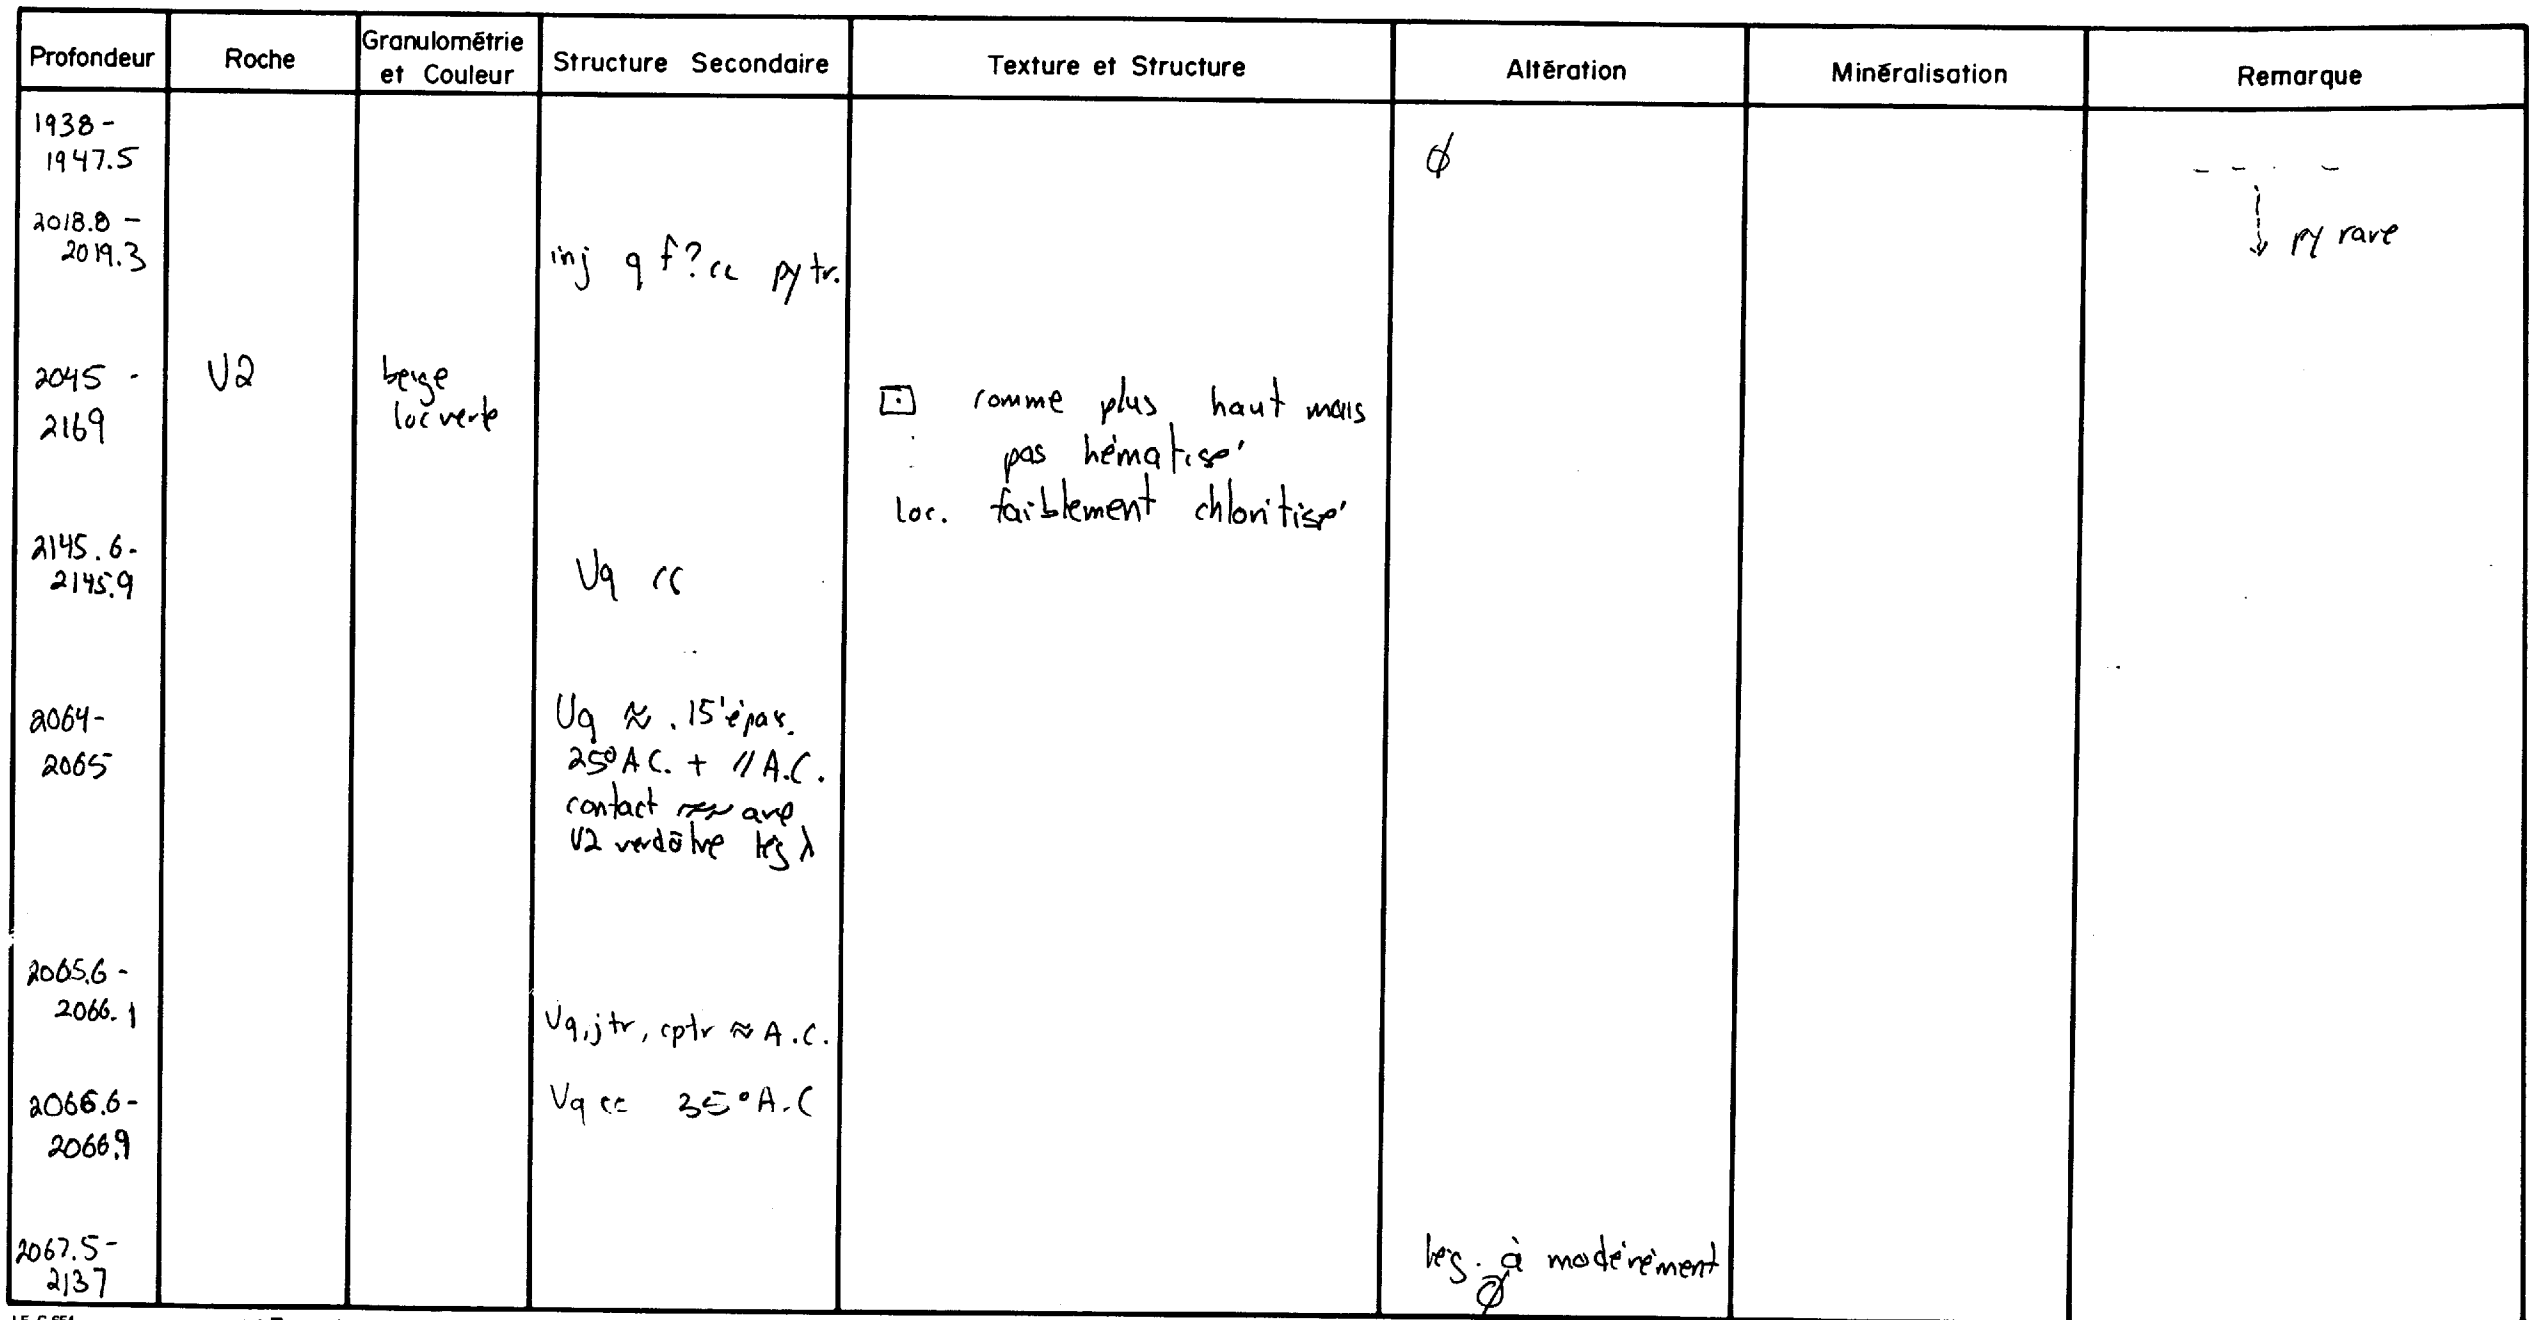 Profondeur Roche Granulométrie et Couleur Structure Secondaire Texture et Structure Altération Minéralisation Remarque
1938 -
1947.5 ϕ
2018.8 -
2019.3 inj q f? cc py tr. py rare
2045 - V2 beige comme plus haut mais
2169 loc verte pas hématisé
loc. faiblement chloritisé
2145.6 -
2145.9 Vq cc
2064 - Vq ≈ .15' épais.
2065 25° A.C. + // A.C.
contact ≈≈ avec
V2 verdâtre lég λ
2065.6 -
2066.1 Vq, j tr, cp tr ≈ A.C.
2066.6 - Vq cc 35° A.C
2066.9
2067.5 - lég. à modérément
2137 ϕ